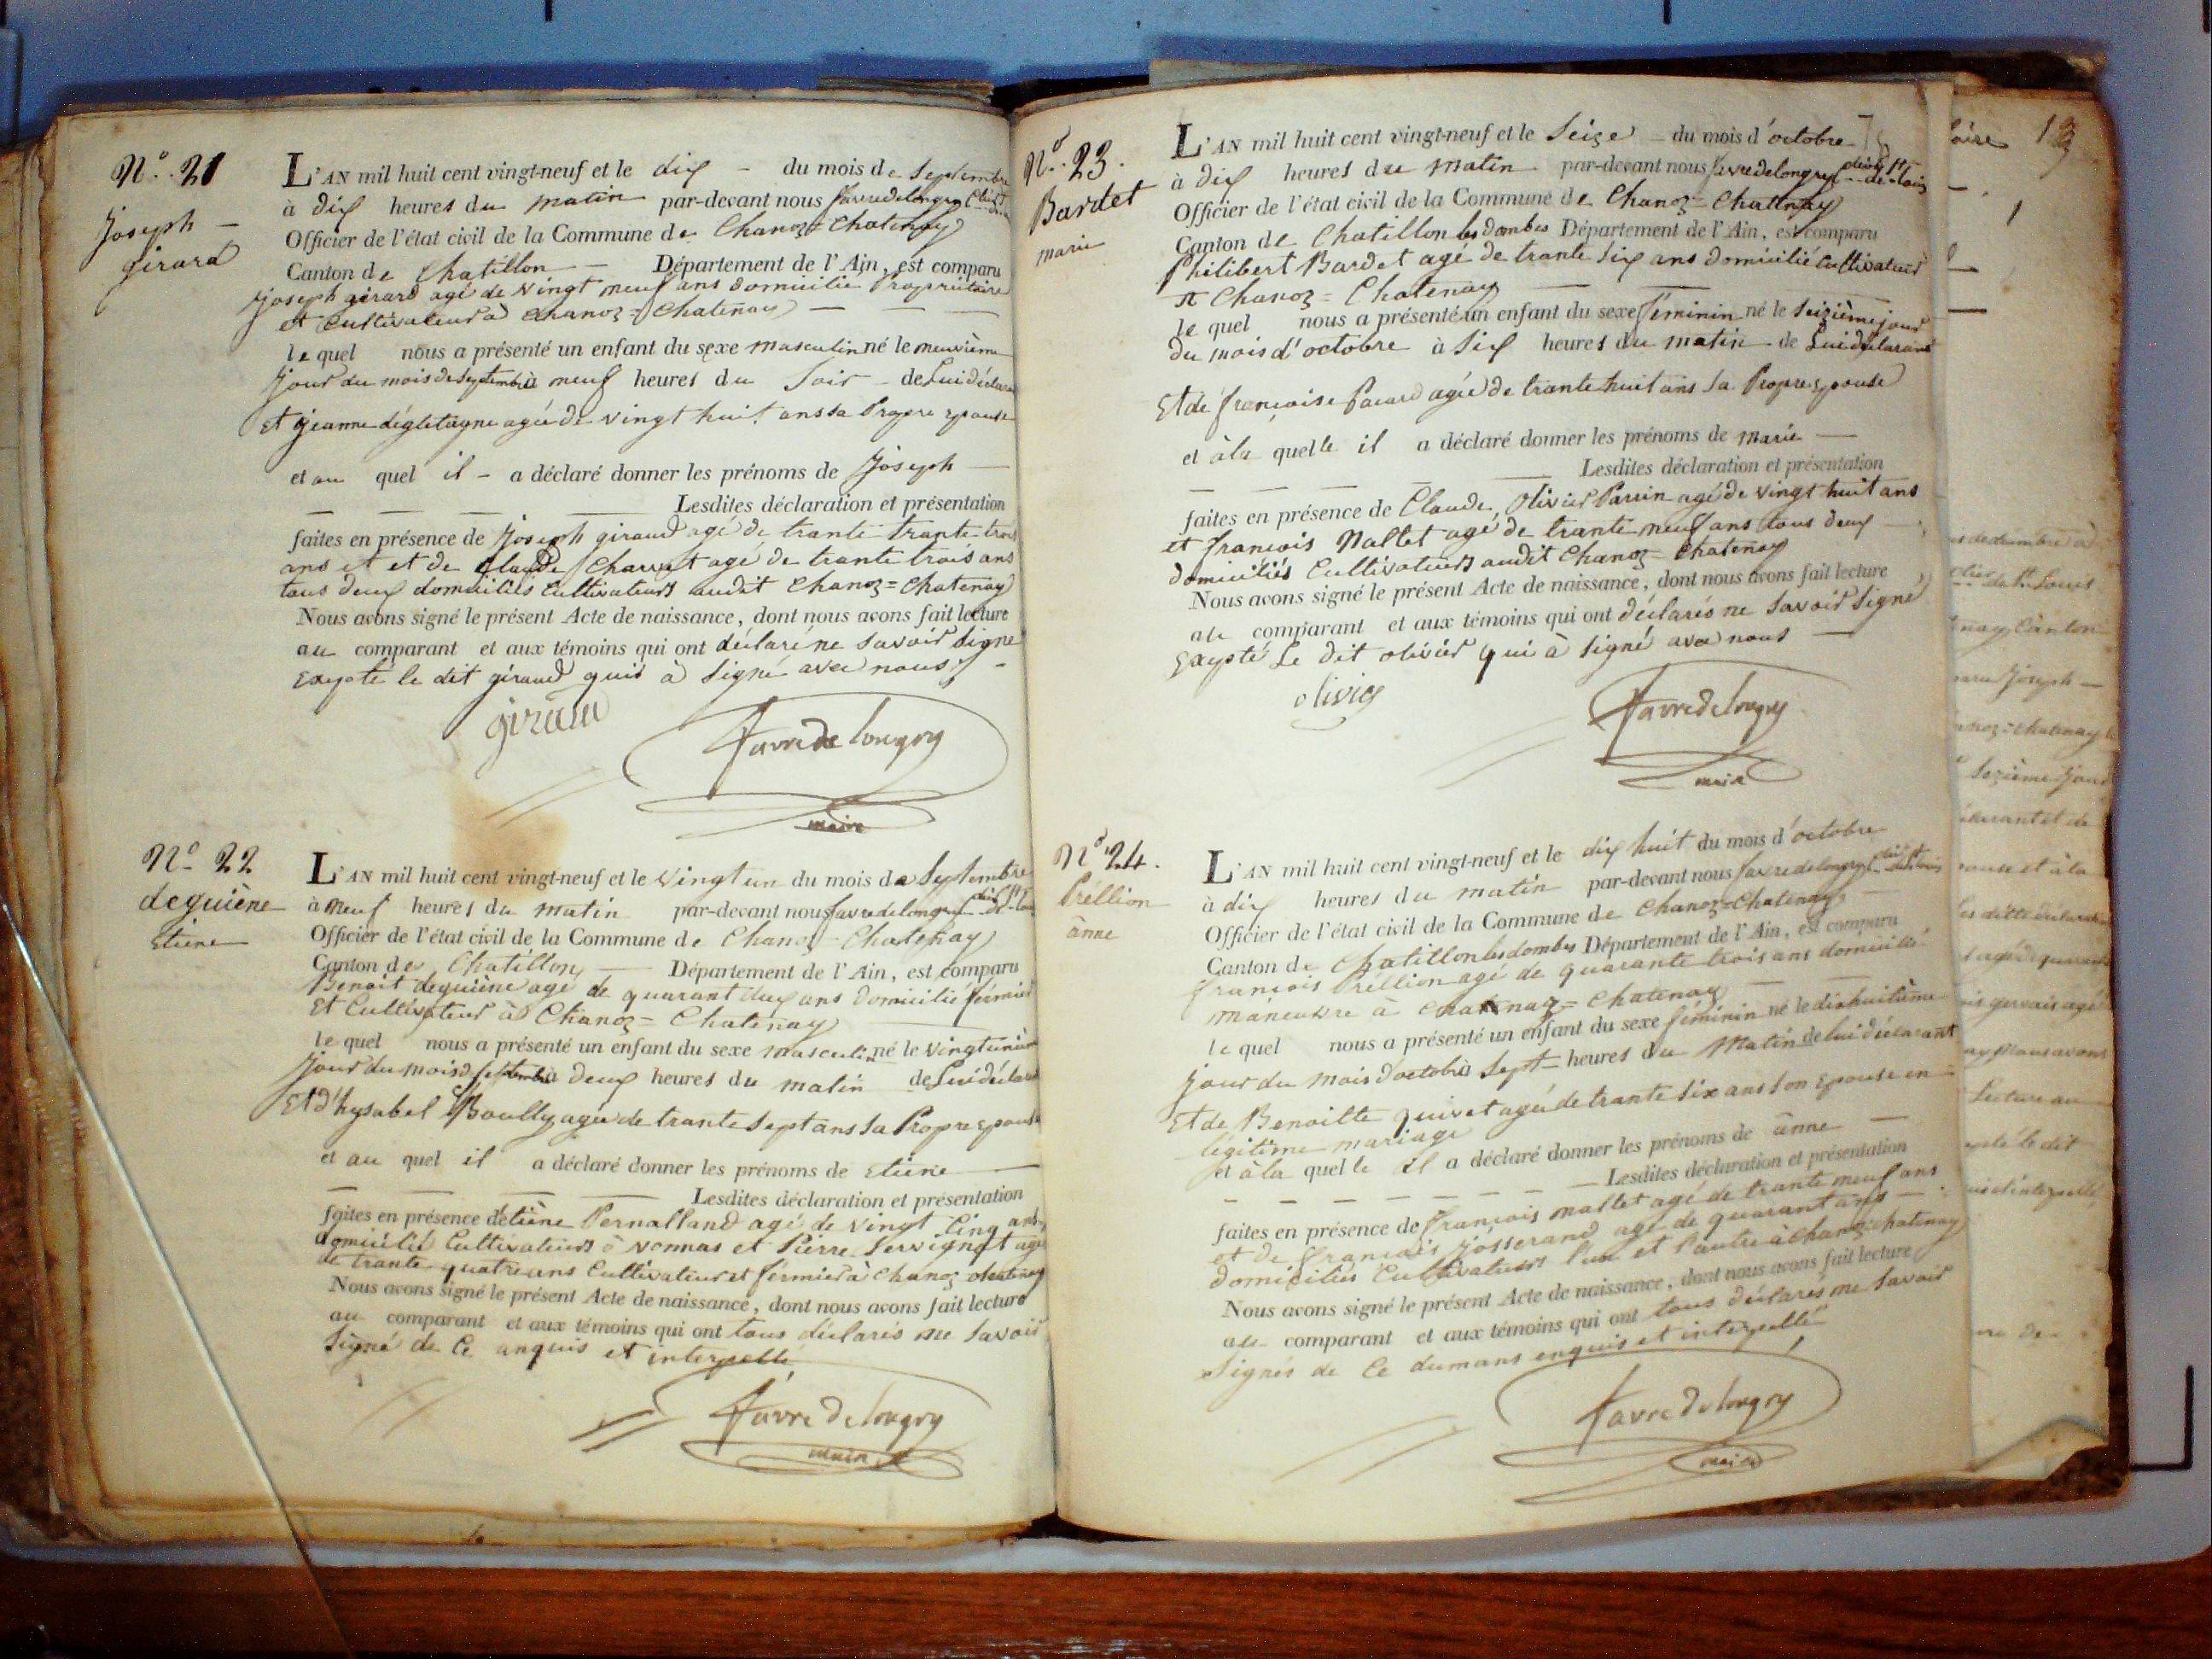 N.° 21
Joseph -
girard
L'AN mil huit cent vingt-neuf et le dix - du mois de Septembre
à dix heures du matin par-devant nous favredelongry
Officier de l'état civil de la Commune de Chanoz = Chatenay
Canton de Chatillon — Département de l'Ain, est comparu
joseph girard agé de vingt neuf ans domicilié Propriétaire
et Cultivateur à Chanoz = Chatenay — — —
le quel nous a présenté un enfant du sexe masculin né le neuvième
jour du mois de septembre à neuf heures du Soir - de Lui déclarant
et jeanne agée de vingt huit ans sa Propre epouse
et au quel il - a déclaré donner les prénoms de Joseph —
— — — — Lesdites déclaration et présentation
faites en présence de Joseph giraud agé de trante trante trois
ans et et de Claude Charvet agé de trante trois ans
tous deux domiciliés Cultivateurs audit Chanoz = Chatenay
Nous avons signé le présent Acte de naissance, dont nous avons fait lecture
au comparant et aux témoins qui ont déclaré ne savoir signe
Exepté le dit giraud quis à Signé avec nous -
giraud
favre de longry
maire
N.° 22
deguiène
Etiene
L'AN mil huit cent vingt-neuf et le vingt un du mois de Septembre
à neuf heures du matin par-devant nous favredelongry
Officier de l'état civil de la Commune de Chanoz = Chatenay
Canton de Chatillon — Département de l'Ain, est comparu
Benoit deguiène agé de quarant deux ans domicilié férmier
Et Cultivateur à Chanoz = Chatenay
le quel nous a présenté un enfant du sexe masculin né le vingtunième
jour du mois d septembre à deux heures du matin de Lui déclarant
Et d'hysabel Boully agée de trante sept ans sa Propre epouse
et au quel il a déclaré donner les prénoms de Etiene —
— — — — Lesdites déclaration et présentation
faites en présence d'étiène Pernalland agé de vingt Cinq ans
domicilié Cultivateurs à vonnas et Pierre Servignat agé
de trante quatre ans Cultivateur et férmier à Chanoz chatenay
Nous avons signé le présent Acte de naissance, dont nous avons fait lecture
au comparant et aux témoins qui ont tous déclarés ne savoir
Signé de Ce anquis et interpellé
favre de longry
maire
N.° 23.
Bardet
marie
L'AN mil huit cent vingt-neuf et le Seize - du mois d'octobre
à dix heures du matin par-devant nous favredelongry
Officier de l'état civil de la Commune de Chanoz = Chatenay
Canton de Chatillon les dombes Département de l'Ain, est comparu
Philibert Bardet agé de trante six ans domicilié Cultivateur
à Chanoz = Chatenay — —
le quel nous a présenté un enfant du sexe féminin né le Seizième jour
du mois d'octobre à Six heures du matin - de Lui déclarant
Et de françoise Pacard agée de trante huit ans sa Propre epouse
et à la quelle il a déclaré donner les prénoms de marie —
— — — — — Lesdites déclaration et présentation
faites en présence de Claude, Olivier Parrin agé de vingt huit ans
et françois Mallet agé de trante neuf ans tous deux —
domiciliés Cultivateurs audit Chanoz = Chatenay
Nous avons signé le présent Acte de naissance, dont nous avons fait lecture
au comparant et aux témoins qui ont déclarés ne savoir Signé
Exepté Le dit olivier qui à signé avec nous —
olivier
favredelongry
maire
N.° 24.
Préllion
ânne
L'AN mil huit cent vingt-neuf et le dix huit du mois d'octobre
à dix heures du matin par-devant nous favredelongry
Officier de l'état civil de la Commune de Chanoz = Chatenay
Canton de Chatillon les dombes Département de l'Ain, est comparu
françois Préllion agé de quarante trois ans domicilié
à = Chatenay —
le quel nous a présenté un enfant du sexe féminin né le dixhuitième
jour du mois d'octobre à Sept heures du Matin de lui déclarant
Et de Benoitte quivet agée de trante six ans son epouse en
légitime mariage
et à la quelle il a déclaré donner les prénoms de ânne —
- - - - - - - - Lesdites déclaration et présentation
faites en présence de françois mallet agé de trante neuf ans
et de françois josserand agé de quarant ans —
domiciliés Cultivateurs l'un et l'autre à Chanoz chatenay
Nous avons signé le présent Acte de naissance, dont nous avons fait lecture
au comparant et aux témoins qui ont tous déclarés ne savoir
Signés de Ce dumans enquis et interpellé
favre de longry
maire
13